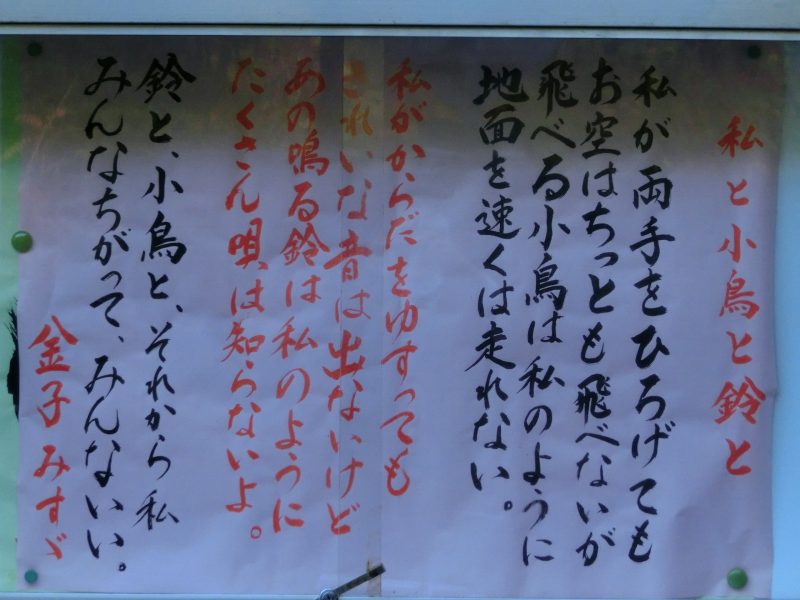 私と小鳥と鈴と
私が両手をひろげても
お空はちっとも飛べないが
飛べる小鳥は私のように
地面を速くは走れない。
私がからだをゆすっても
きれいな音は出ないけど
あの鳴る鈴は私のように
たくさん唄は知らないよ。
鈴と、小鳥と、それから私
みんなちがって、みんないい。
金子みすゞ